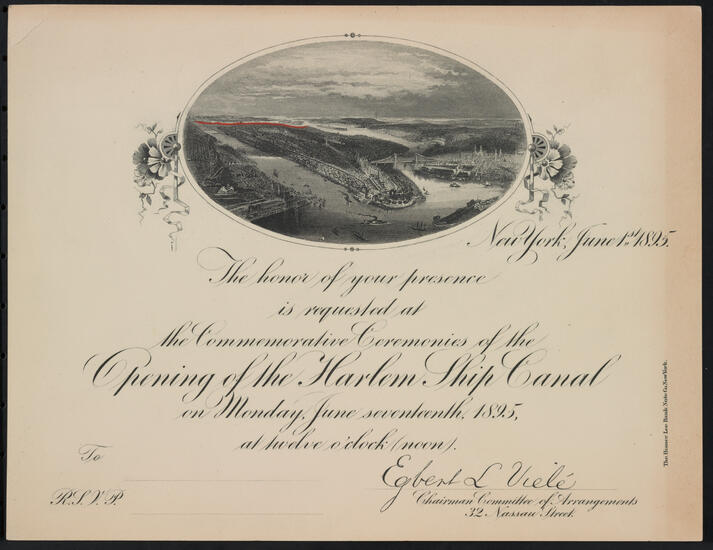 New York, June 1st 1895.
The honor of your presence
is requested at
the Commemorative Ceremonies of the
Opening of the Harlem Ship Canal
on Monday, June seventeenth, 1895,
at twelve o'clock (noon).
To
Egbert L Vielé
Chairman Committee of Arrangements
32 Nassau Street
R.S.V.P.
The Homer Lee Bank Note Co, New York.